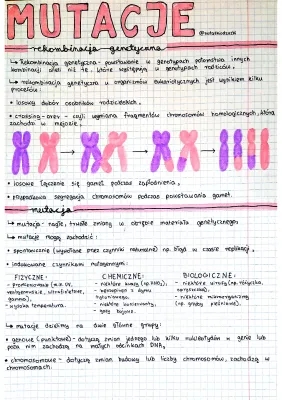 MUTACJE
rekombinacja genetyczna
↳ Rekombinacja genetyczna - powstawanie w genotypach potomstwa innych
kombinacji alleli niż te, które występują w genotypach rodziców.
↳ rekombinacja genetyczna u organizmów eukariotycznych jest wynikiem kilku
procesów:
• losowy dobór osobników rodzicielskich,
• crossing-over - czyli wymiana fragmentów chromosomów homologicznych, która
zachodzi w mejozie,
• losowe łączenie się gamet podczas zapłodnienia,
• segregacja chromosomów podczas powstawania gamet.
mutacja
↳ mutacja - nagłe, trwałe zmiany w obrębie materiału genetycznego.
↳ mutacje mogą zachodzić:
• spontanicznie (wywołane przez czynniki naturalne) np. błąd w czasie replikacji,
• indukowane czynnikami mutagennymi:
FIZYCZNE: CHEMICZNE: BIOLOGICZNE:
- promieniowanie (n.p. UV, - niektóre kwasy (np. HNO₂), - niektóre wirusy (np. różyczka,
gamma), - składniki dymu
- wysoka temperatura. tytoniowego, - niektóre mikroorganizmy
- niektóre (np. grzyby pleśniowe).
- gazy bojowe.
↳ mutacje dzielimy na dwie główne grupy:
• genowe (punktowe) - dotyczą zmian jednego lub kilku nukleotydów w genie lub
poza nim zachodzą na małych odcinkach DNA,
• chromosomowe - dotyczą zmian budowy lub liczby chromosomów, zachodzą w
chromosomach.